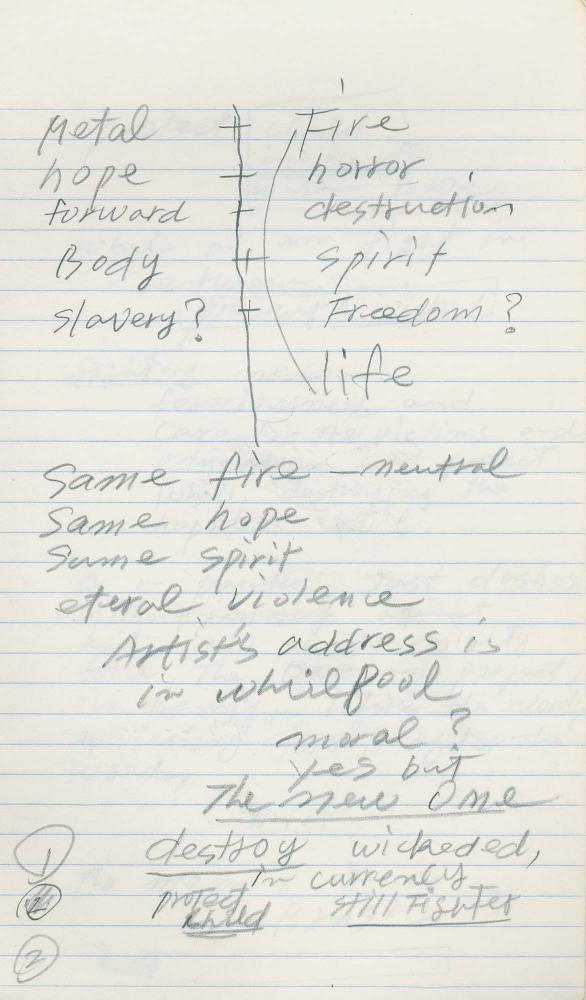 Metal + Fire
hope + horror
forward + destruction
Body + spirit
slavery? + Freedom?
life
Same fire – neutral
Same hope
Same spirit
eteral violence
Artist's address is
in whilpool
moral?
yes but
The new One
1 destroy wickeded,
in currenly
2 protect still Fighter
child
2